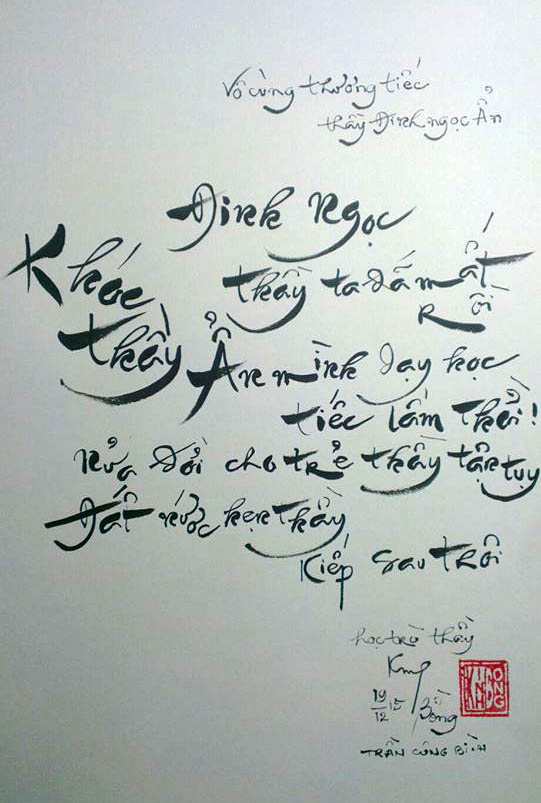 Vô cùng thương tiếc
thầy Đinh ngọc Ẩn
Khóc thầy
Đinh Ngọc
thầy ta đã mất
Rồi
Ẩn mình dạy học
tiếc lắm thôi!
Nửa đời cho trẻ thầy tận tụy
Đất nước hẹn thầy
Kiếp sau thôi
học trò thầy
19/12 15
TRẦN CÔNG BÌNH